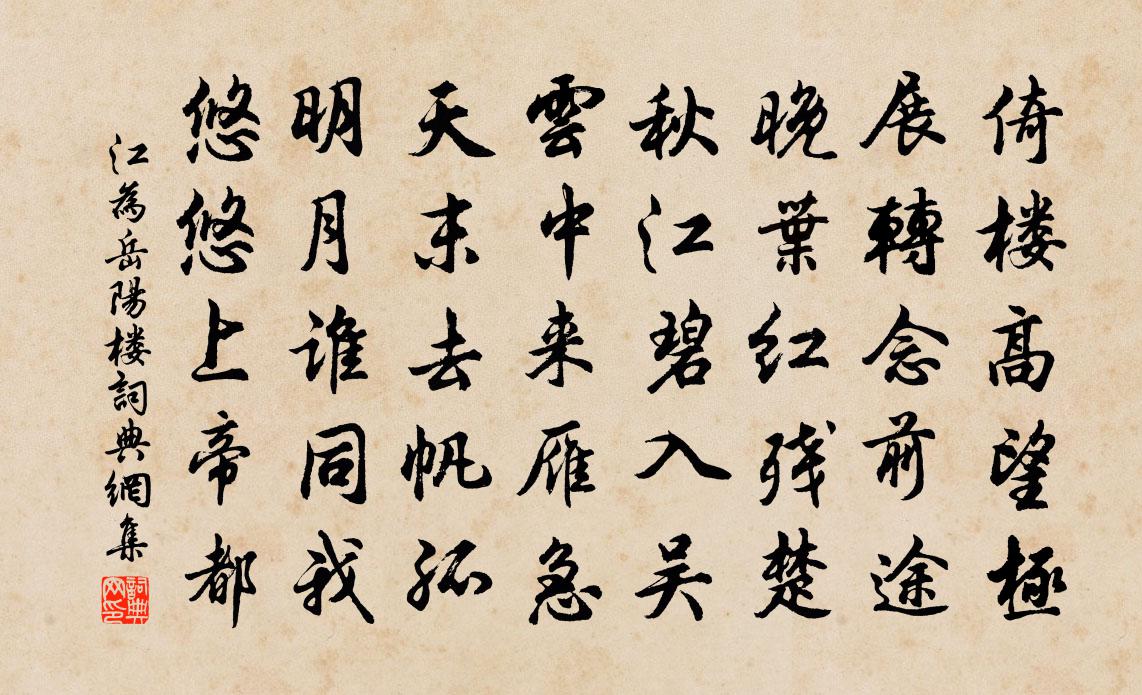 倚楼高望極
展轉念前途
晚葉红残楚
秋江碧入吴
雲中来雁急
天末去帆孤
明月谁同我
悠悠上帝都
江為岳陽楼詞典網集
詞典网印